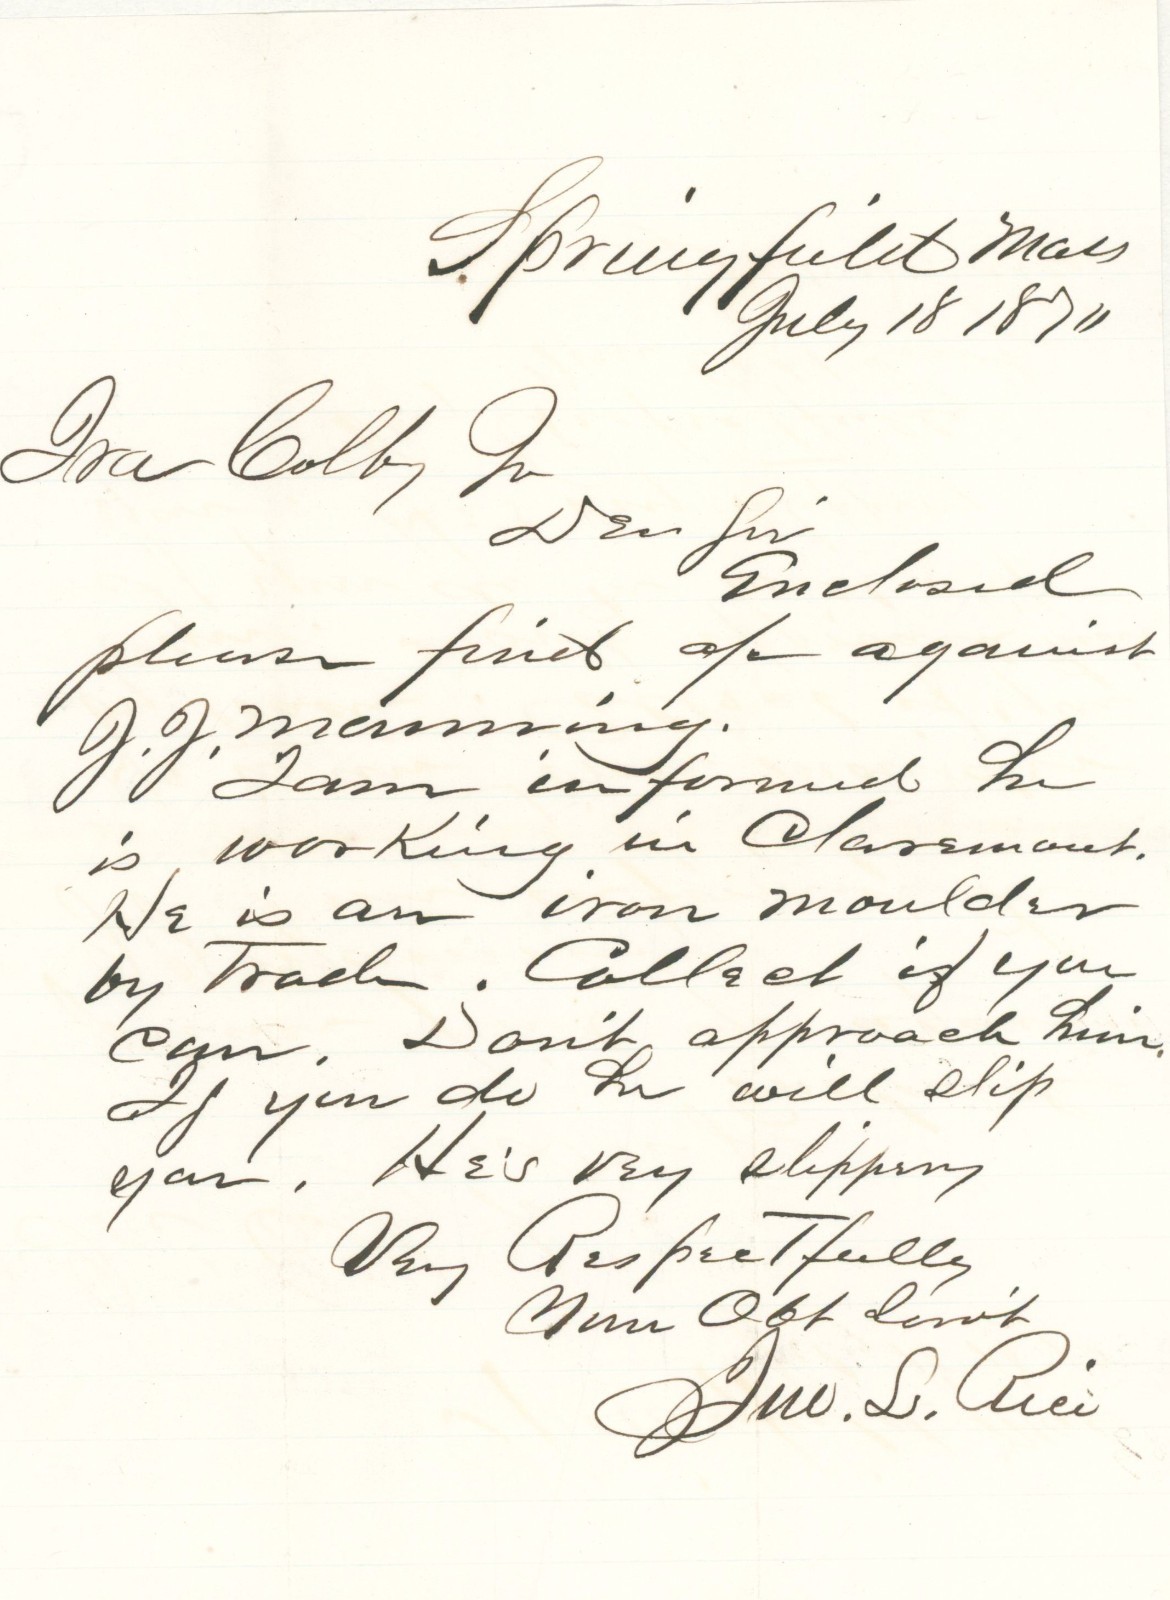 Springfield Mass
July 18 1870
Ira Colby Jr
Dear Sir
Enclosed
please find a/c against
J. J. Manning.
I am informed he
is working in Claremont.
He is an iron moulder
by Trade. Collect if you
can. Don't approach him.
If you do he will slip
you. He's very slippery
Very Respectfully
Your Obt Servt
Jno. L. Rice